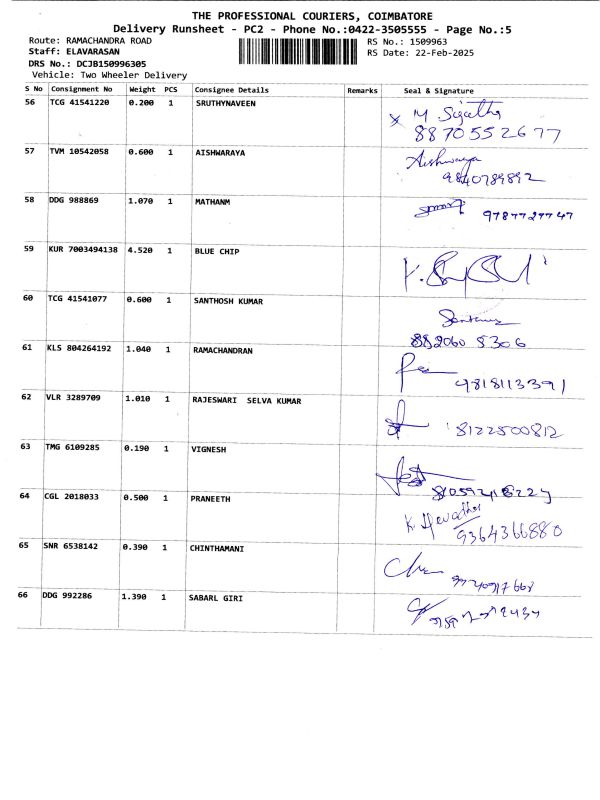 THE PROFESSIONAL COURIERS, COIMBATORE
Delivery Runsheet - PC2 - Phone No.:0422-3505555 - Page No.:5
Route: RAMACHANDRA ROAD RS No.: 1509963
Staff: ELAVARASAN RS Date: 22-Feb-2025
DRS No.: DCJB150996305
Vehicle: Two Wheeler Delivery
S No Consignment No Weight PCS Consignee Details Remarks Seal & Signature
56 TCG 41541220 0.200 1 SRUTHYNAVEEN
8870552677
57 TVM 10542058 0.600 1 AISHWARAYA Aishwarya
9840789892
58 DDG 988869 1.070 1 MATHANM 9787727747
59 KUR 7003494138 4.520 1 BLUE CHIP
60 TCG 41541077 0.600 1 SANTHOSH KUMAR
882060 8306
61 KLS 804264192 1.040 1 RAMACHANDRAN
9818113391
62 VLR 3289709 1.010 1 RAJESWARI SELVA KUMAR
8122500812
63 TMG 6109285 0.190 1 VIGNESH
64 CGL 2018033 0.500 1 PRANEETH
9364366880
65 SNR 6538142 0.390 1 CHINTHAMANI
66 DDG 992286 1.390 1 SABARL GIRI